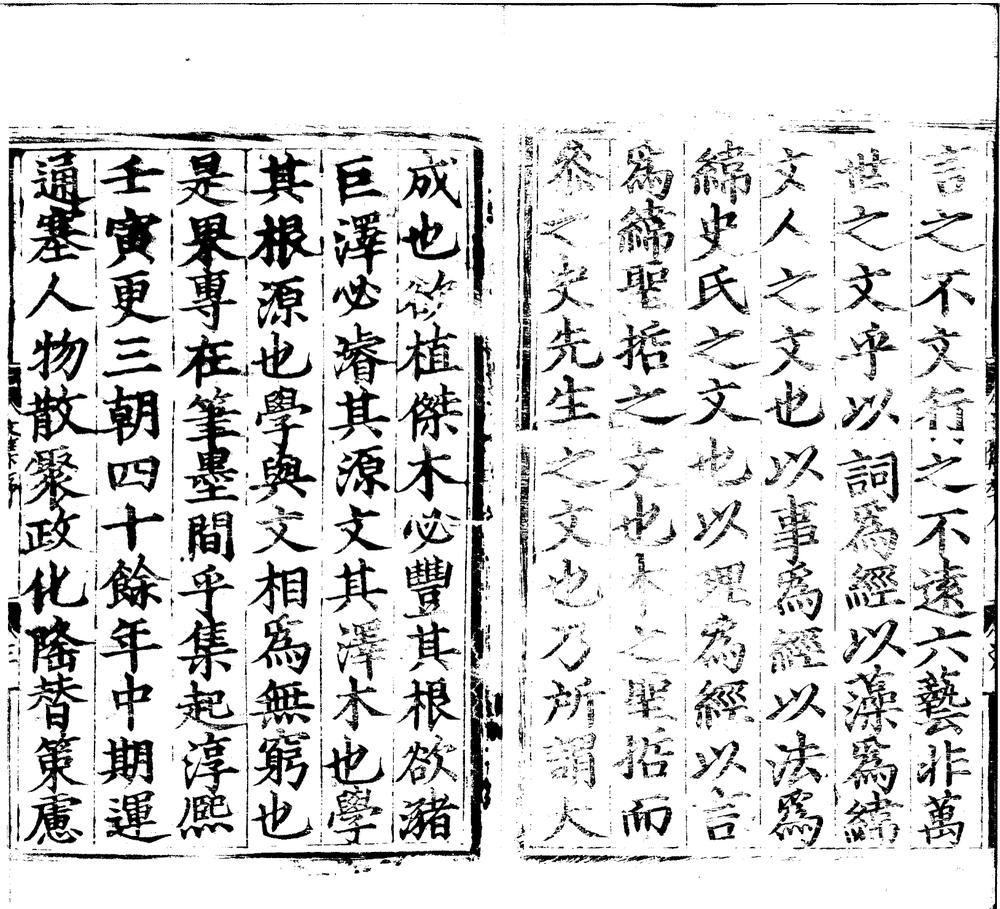 言之不文行之不遠六藝非萬
世之文乎以詞為經以藻為緯
文人之文也以事為經以法為
緯史氏之文也以理為經以言
為緯聖哲之文也本之聖哲而
叅之史先生之文也乃所謂大
成也欲植傑木必豐其根欲瀦
巨澤必濬其源文其澤木也學
其根源也學與文相為無窮也
是畢專在筆墨間乎集起淳熈
壬寅更三朝四十餘年中期運
通塞人物散聚政化隆替策慮